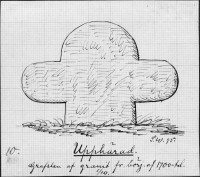 S.W. 95.
Upphärad.
10.
Grafsten af granit fr. börj. af 1700-tal.
1/20.